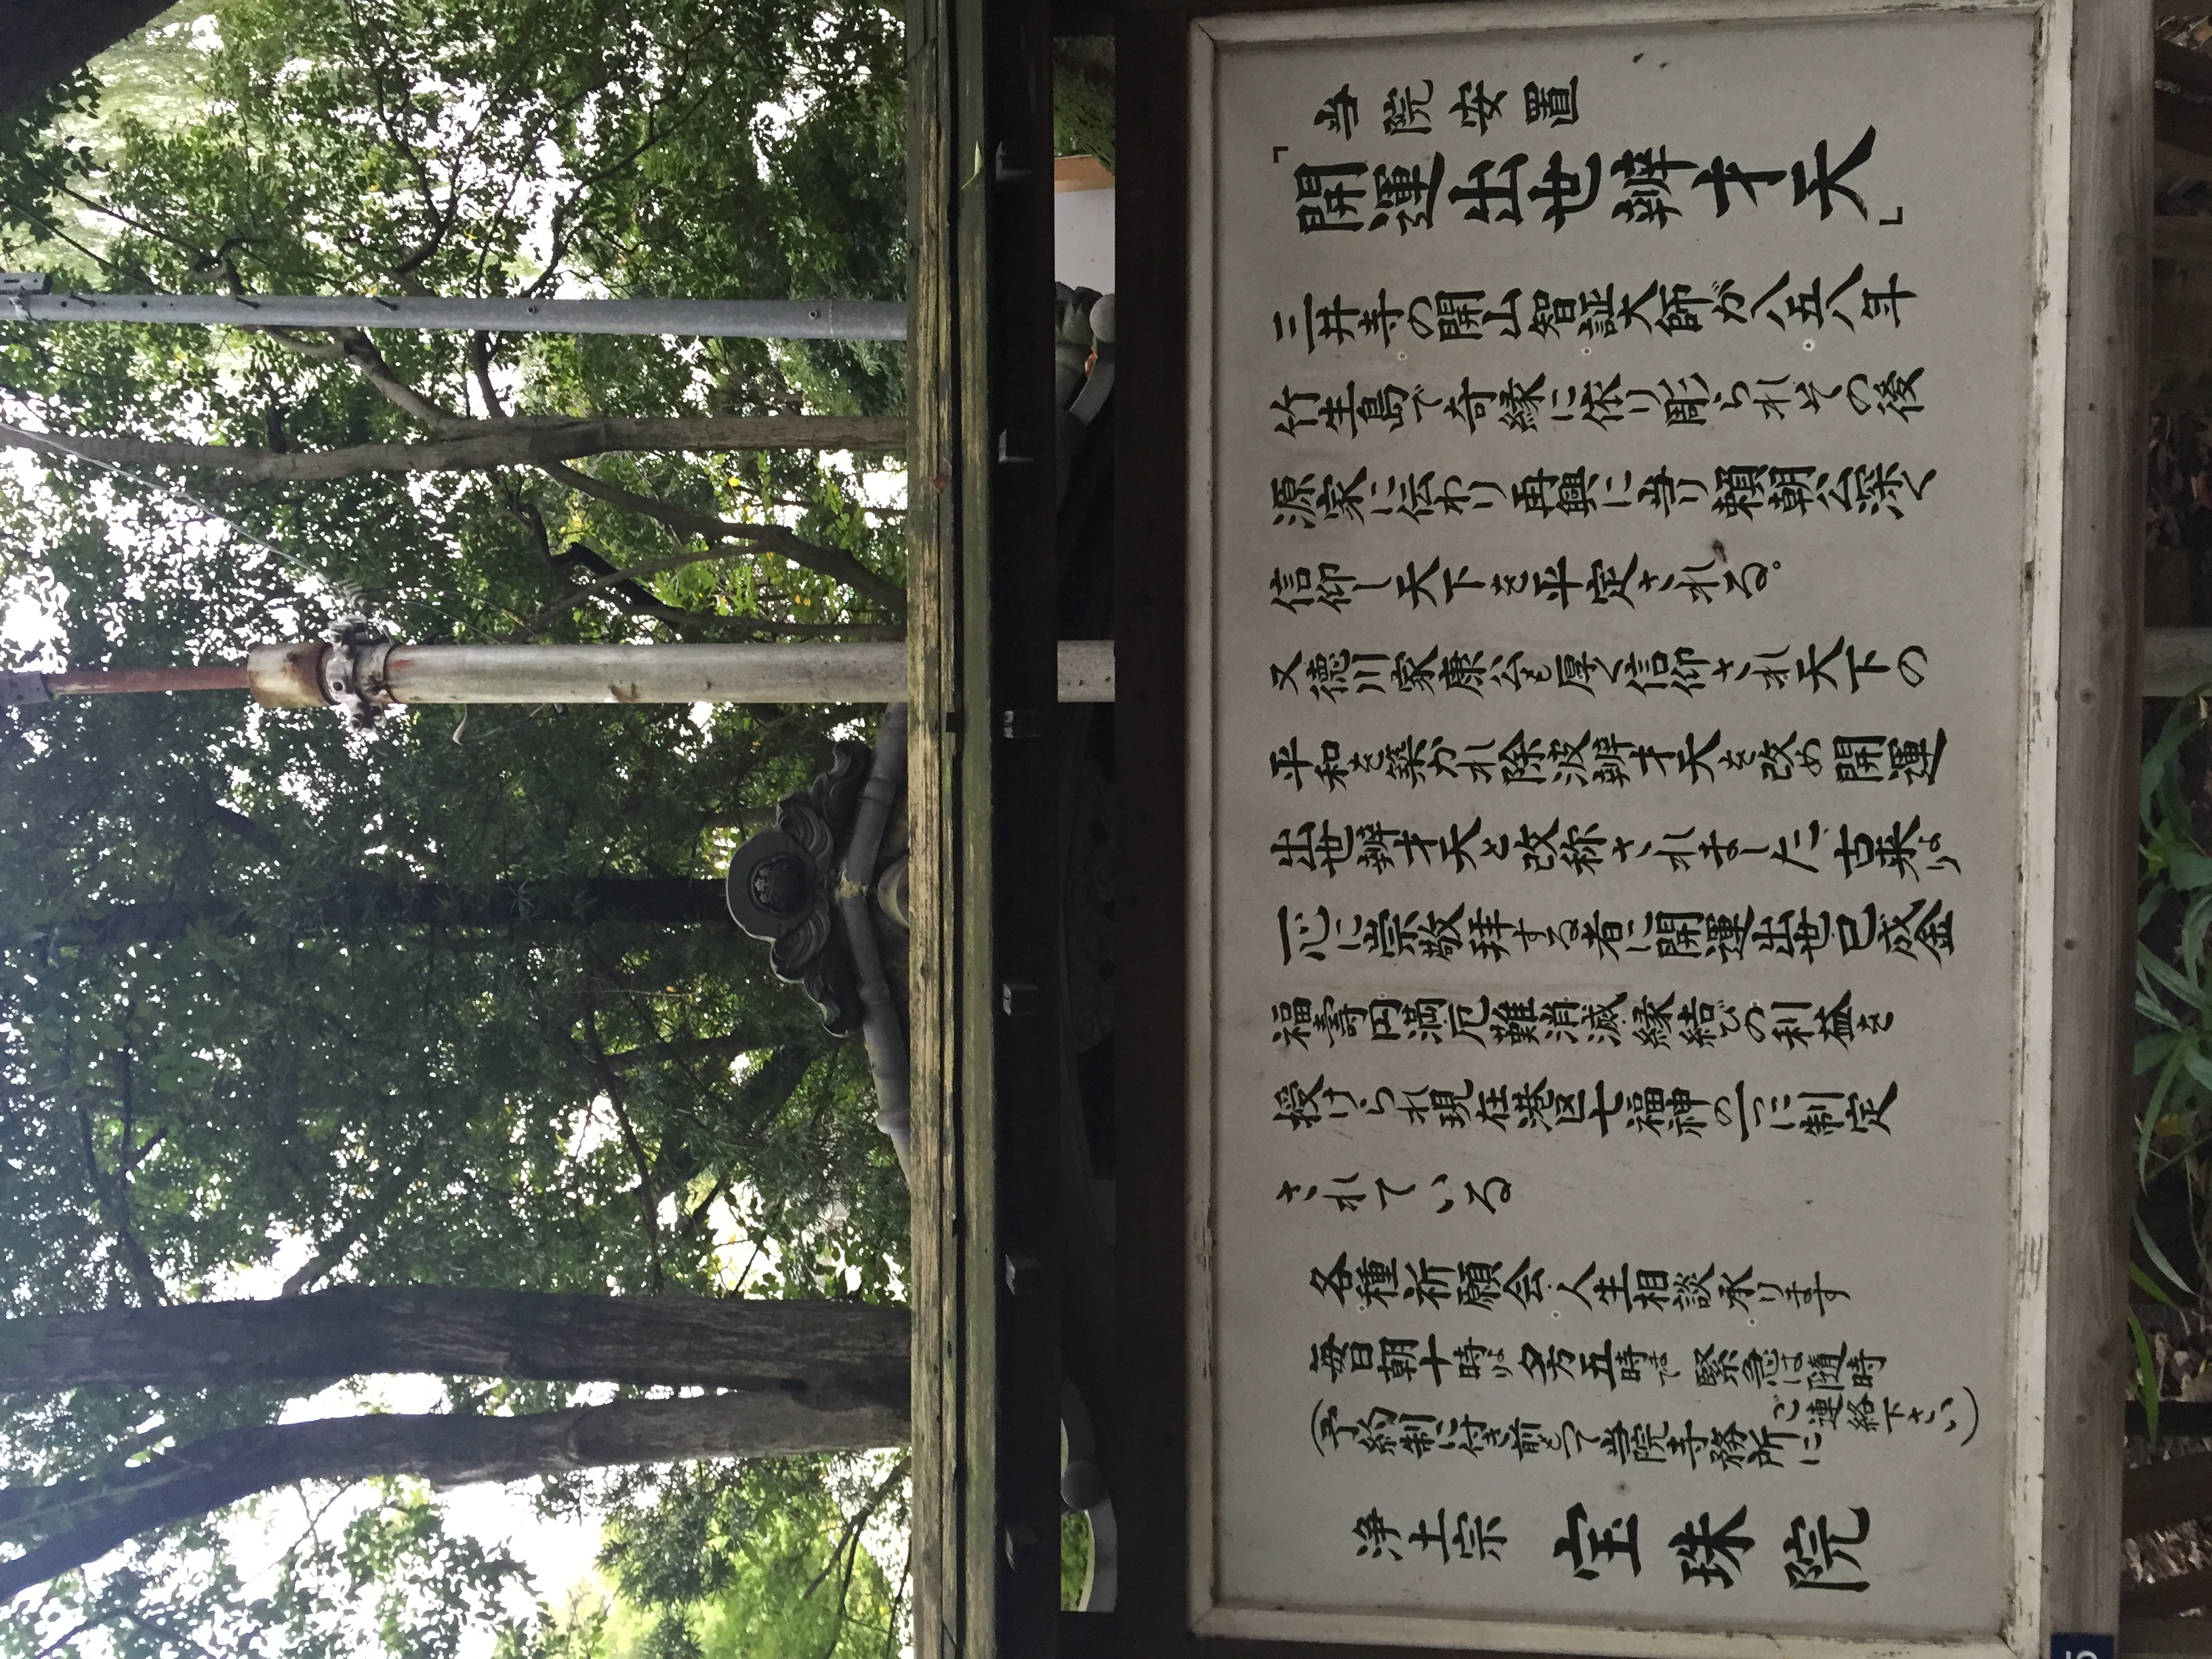 当院安置
「開運出世辨才天」
三井寺の開山智証大師が八五八年
竹生島で奇縁に依り彫られその後
源家に伝わり再興に当り頼朝公深く
信仰し天下を平定される。
又徳川家康公も厚く信仰され天下の
平和を築かれ除波辨才天を改め開運
出世辨才天と改称されました古来より
一心に崇敬拝する者に開運出世巳成金
福寿円満厄難消滅縁結びの利益を
授けられ現在港区七福神の一つに制定
されている
各種祈願会・人生相談承ります
毎日朝十時より夕方五時まで 緊急は随時
(予約制に付き前もって当院寺務所に
ご連絡下さい)
浄土宗 宝珠院